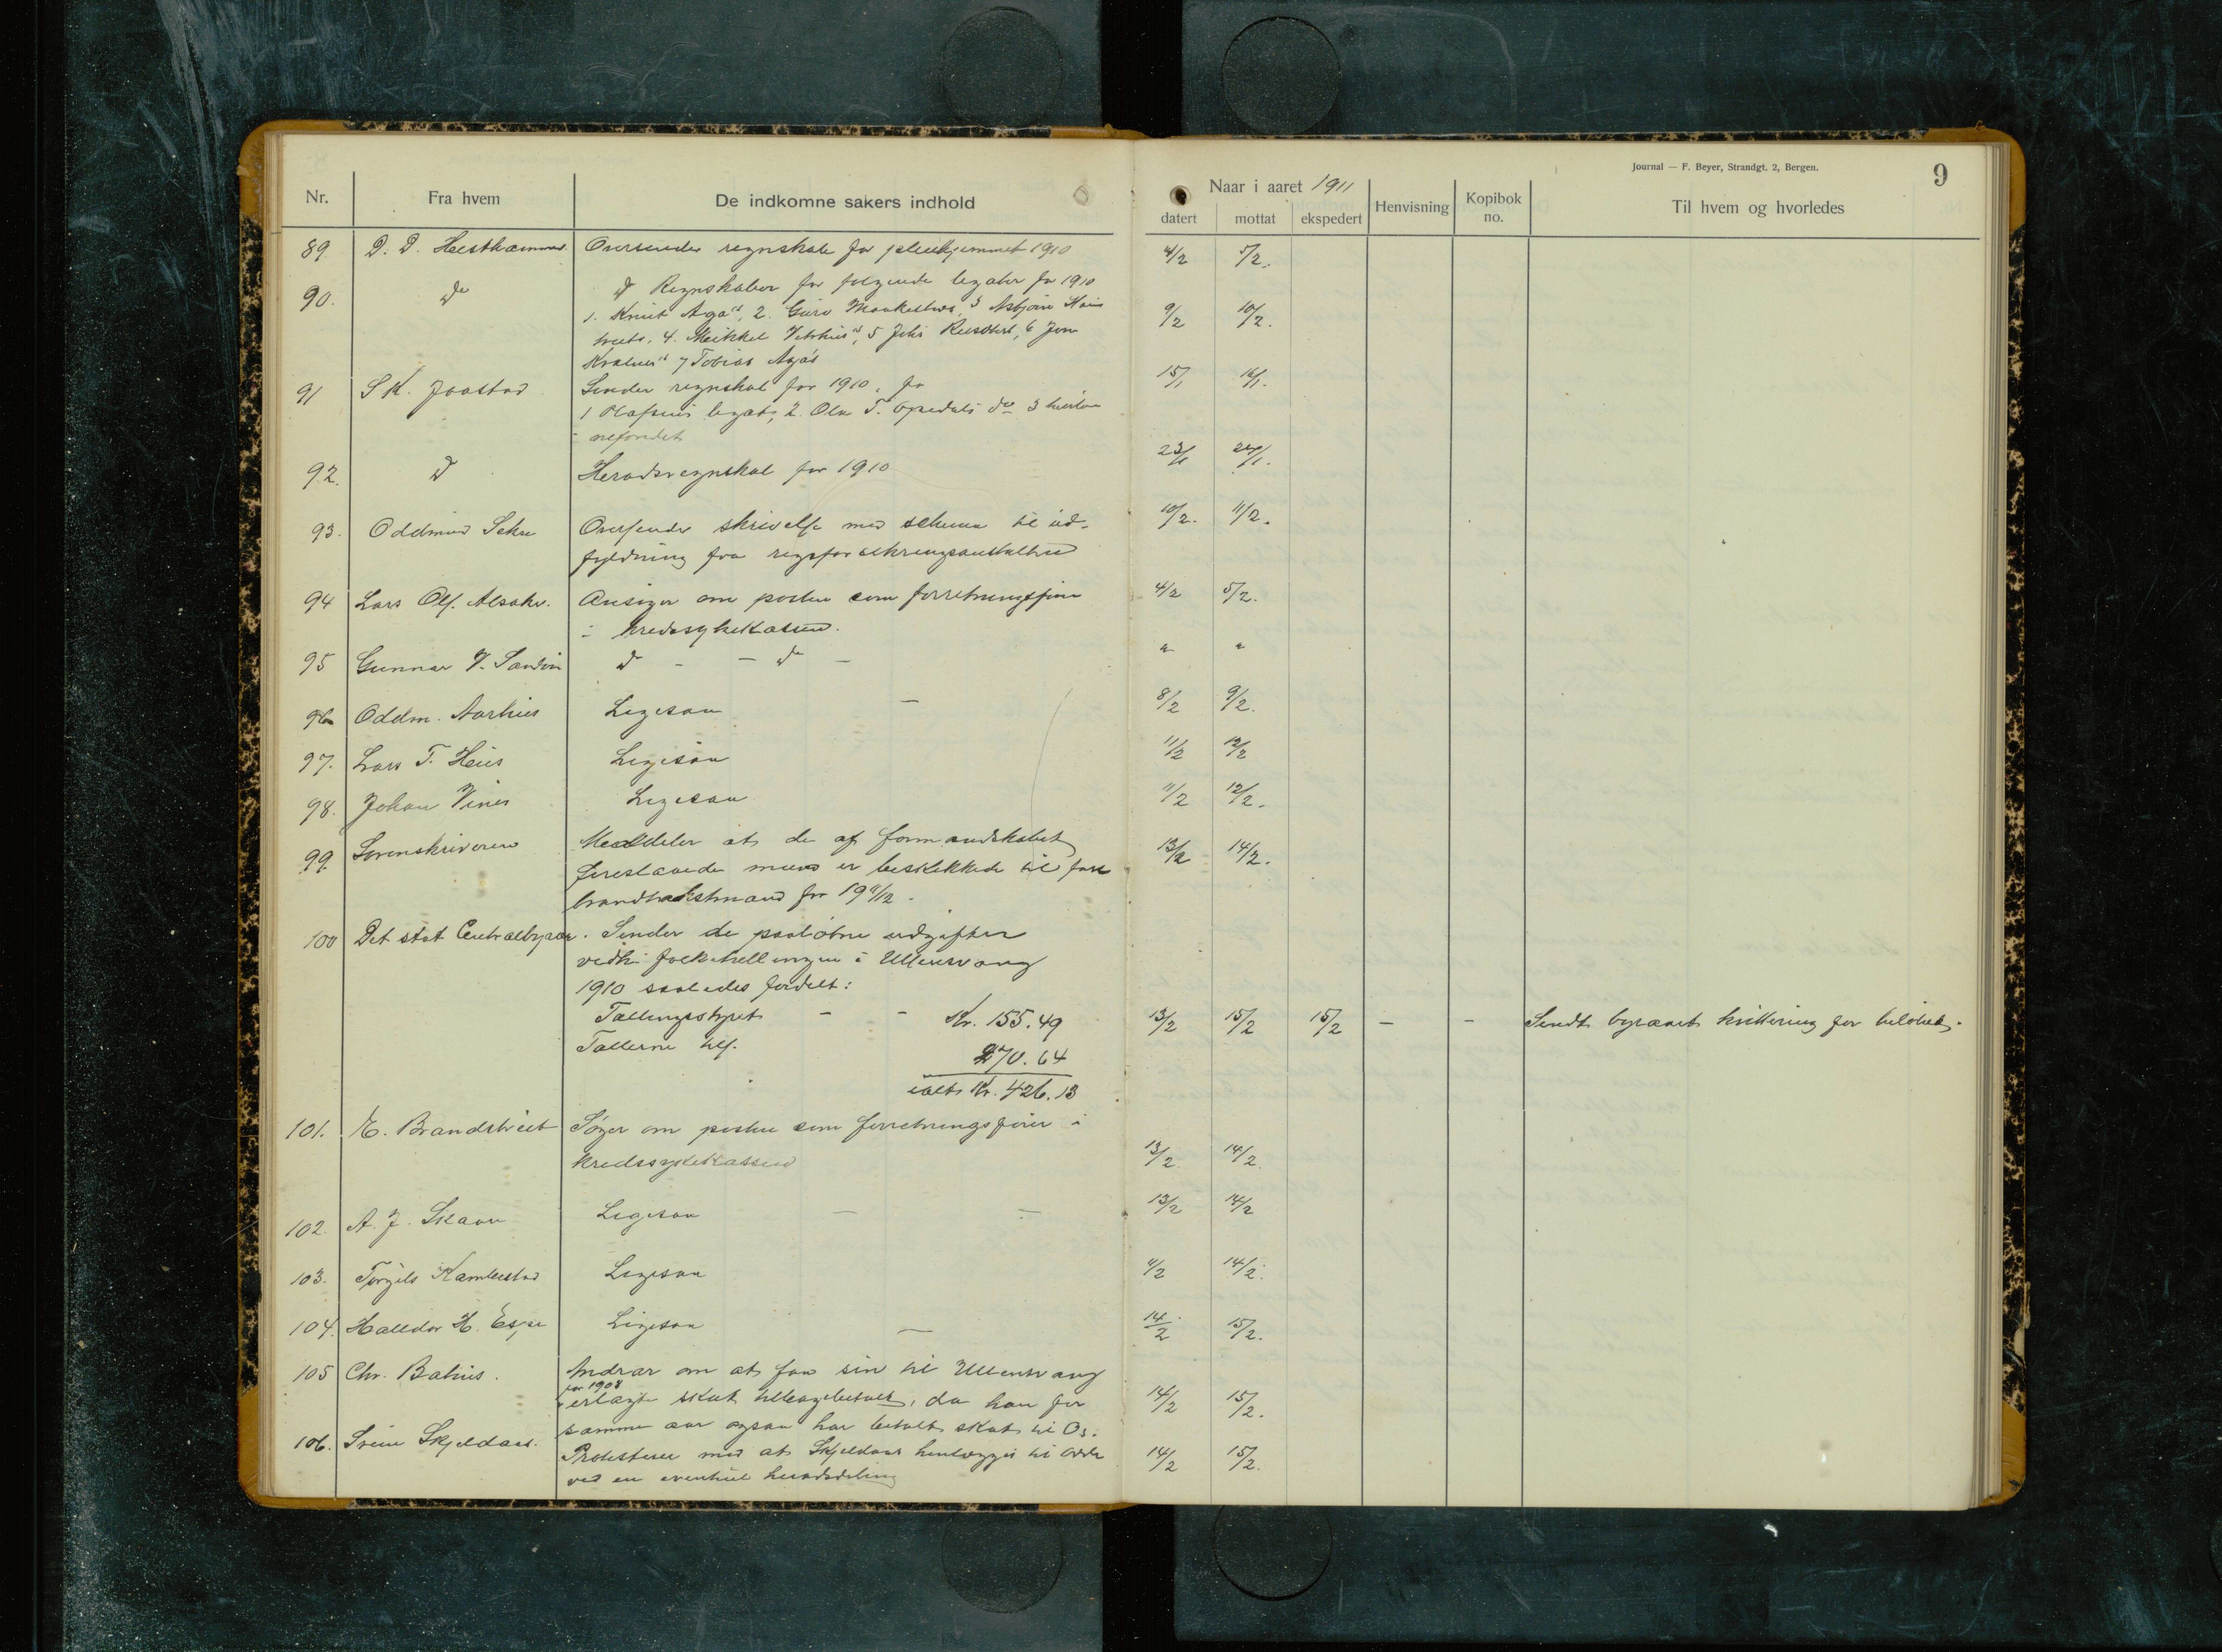 Journal — F. Beyer, Strandgt. 2, Bergen.
9
Nr. Fra hvem De indkomne sakers indhold
Naar i aaret 1911
datert mottat ekspedert Henvisning Kopibok no. Til hvem og hvorledes
89. D. D. Hesthammer. Oversender regnskab for pleiehjemmet 1910 4/2 5/2.
90. do do Regnskaber for følgende legater for 1910 9/2 10/2.
1. Knut Aga's, 2. Guro 3 Asbjørn
4. Meikkel 5 6 Jon
Kvalnes' 7 Tobias Aga's
91 S K. Jaastad Sender regnskab for 1910, for 15/1 16/1.
1 Olafsens legat, 2. Ola T. Opedals do 3
nefondet
92. do Heradsregnskab for 1910 23/1 24/1.
93. Oddmund Sekse Oversender skrivelse med schema til ud- 10/2. 11/2.
fyldning fra rigsforsikringsanstalten
94 Lars Olf. Alsaker. Ansøger om posten som forretningsfører 4/2 5/2.
i kredssykekassen.
95 Gunnar V. Sandvin do - - do - " "
96 Oddm. Aarhus Ligesaa — 8/2 9/2.
97. Lars T. Heus Ligesaa 11/2 12/2
98. Johan Vines Ligesaa 11/2 12/2.
99. Sorenskriveren Meddeler at de af formandskabet 13/2 14/2.
foreslaaede mænd er beskikkede til
brandtakstmænd for 1911/12.
100 Det stat Centralbyraa. Sender de paaløbne udgifter
vedk. folketællingen i Ullensvang
1910 saaledes fordelt:
Tællingsstyret - - Kr. 155.49 13/2 15/2 15/2 — - Sendt byraaet kvittering for beløbet.
Tællerne tils. 270.64
ialt Kr. 426.13
101. E. Brandstveit Søger om posten som forretningsfører i
kredssykekassen 13/2. 14/2.
102. A. J. Skaare Ligesaa — — 13/2 14/2
103. Torgils Kambestad Ligesaa 11/2 14/2.
104. Halldor H. Espe Ligesaa — 14/2 15/2.
105 Chr. Bahus. Andrar om at faa sin til Ullensvang
for 1908
erlagte skat tilbagebetalt, da han for 14/2 15/2.
samme aar ogsaa har betalt skat til Os.
106. Svein Skjeldaas. Protesterer mod at Skjeldaas henlægges til Odda 14/2 15/2.
ved en eventuel heradsdeling